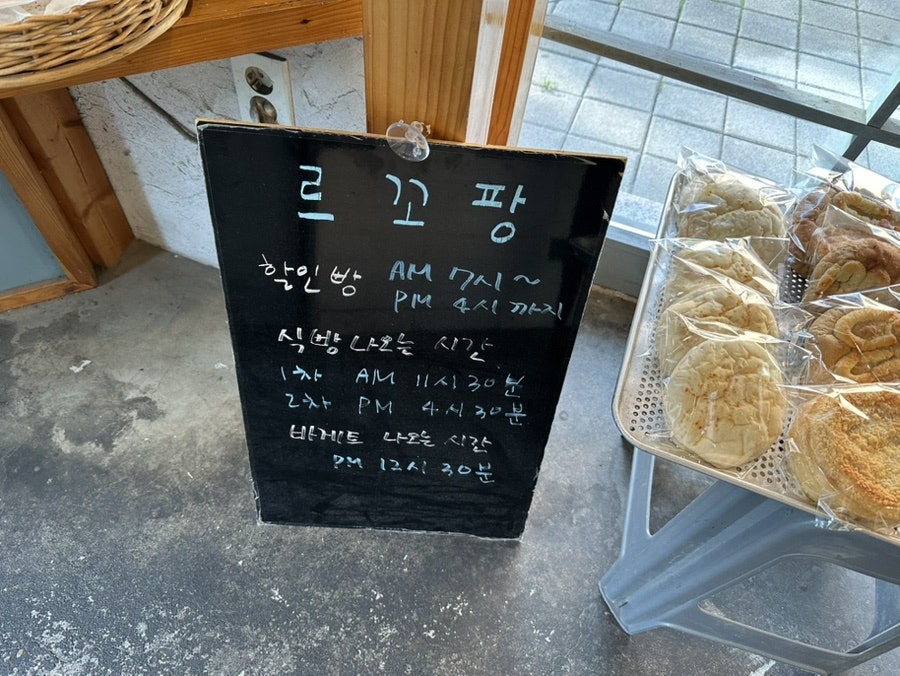 르꼬팡
할인빵 AM 7시~
PM 4시까지
식빵 나오는 시간
1차 AM 11시 30분
2차 PM 4시 30분
바게트 나오는 시간
PM 12시 30분